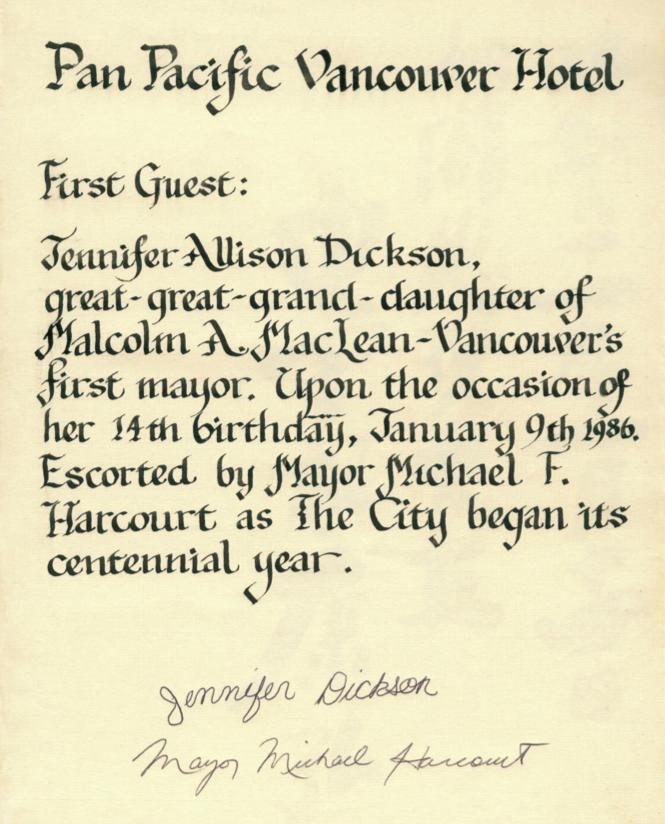 Pan Pacific Vancouver Hotel
First Guest:
Jennifer Allison Dickson,
great-great-grand-daughter of
Malcolm A. MacLean-Vancouver's
first mayor. Upon the occasion of
her 14th birthday, January 9th 1986.
Escorted by Mayor Michael F.
Harcourt as The City began its
centennial year.
Jennifer Dickson
Mayor Michael Harcourt